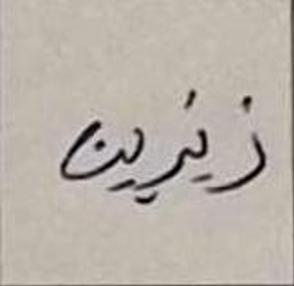 زیزین